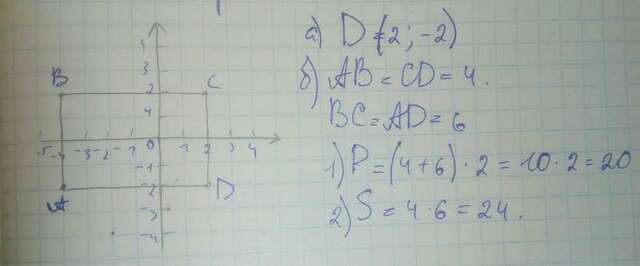 3
B C
2
-5 -4 -3 -2 -1 0 1 2 3 4
-1
-2
A D
-3
-4
а) D (2; -2)
б) AB = CD = 4.
BC = AD = 6
1) P = (4+6) · 2 = 10 · 2 = 20
2) S = 4 · 6 = 24.